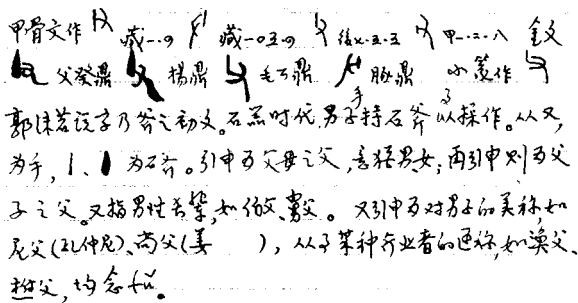 甲骨文作 藏一·一〇 藏一〇五·一 後 甲一·二·八 金文
父癸鼎 揚鼎 毛公鼎 鼎 小篆作
郭沫若说字乃斧之初文。石器时代,男子手持石斧以操作。从又,
为手,丨、 为石斧。引申为父母之父,意犹男女;再引申则为父
子之父。又指男性长辈,如伯父、舅父。又引申为对男子的美称,如
尼父(孔仲尼)、尚父(姜 ),从事某种行业者的通称,如渔父、
父,均念 。